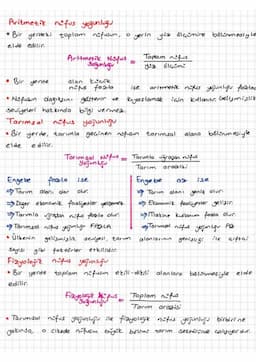 Aritmetik nüfus yoğunluğu
• Bir yerdeki toplam nüfusun, o yerin yüz ölçümüne bölünmesiyle
elde edilir.
Aritmetik Nüfus Yoğunluğu = Toplam nüfus
Yüz ölçümü
• Bir yerde alan küçük nüfus fazla ise aritmetik nüfus yoğunluğu fazladır
• Nüfusun dağılışını gösterir ve kıyaslamak için kullanılır, gelişmişlik
seviyeleri hakkında bilgi vermez.
Tarımsal nüfus yoğunluğu
• Bir yerde, tarımla geçinen nüfusun tarımsal alana bölünmesiyle
elde edilir.
Tarımsal Nüfus Yoğunluğu = Tarımla uğraşan nüfus
Tarım arazisi
Engebe fazla ise
→ Tarım alanı dar olur.
→ Diğer ekonomik faaliyetler gelişmemiş
→ Tarımla uğraşan nüfus fazla olur.
→ Tarımsal nüfus yoğunluğu FAZLA
Engebe az ise
→ Tarım alanı geniş olur.
→ Ekonomik faaliyetler gelişir.
→ Makine kullanımı fazla olur.
→ Tarımsal nüfus yoğunluğu AZ
• Ülkenin gelişmişlik seviyesi, tarım alanlarının genişliği ile çiftçi
sayısı gibi faktörler etkilidir.
Fizyolojik nüfus yoğunluğu
• Bir yerde toplam nüfusun ekili-dikili alanlara bölünmesiyle elde
edilir.
Fizyolojik Nüfus Yoğunluğu = Toplam nüfus
Tarım arazisi
• Tarımsal nüfus yoğunluğu ile fizyolojik nüfus yoğunluğu birbirine
yakınsa, o ülkede nüfusun büyük kısmı tarım sektöründe çalışıyordur.